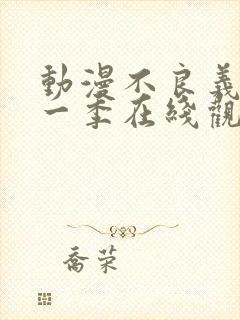 動漫不良義
一季在綫觀
喬荣